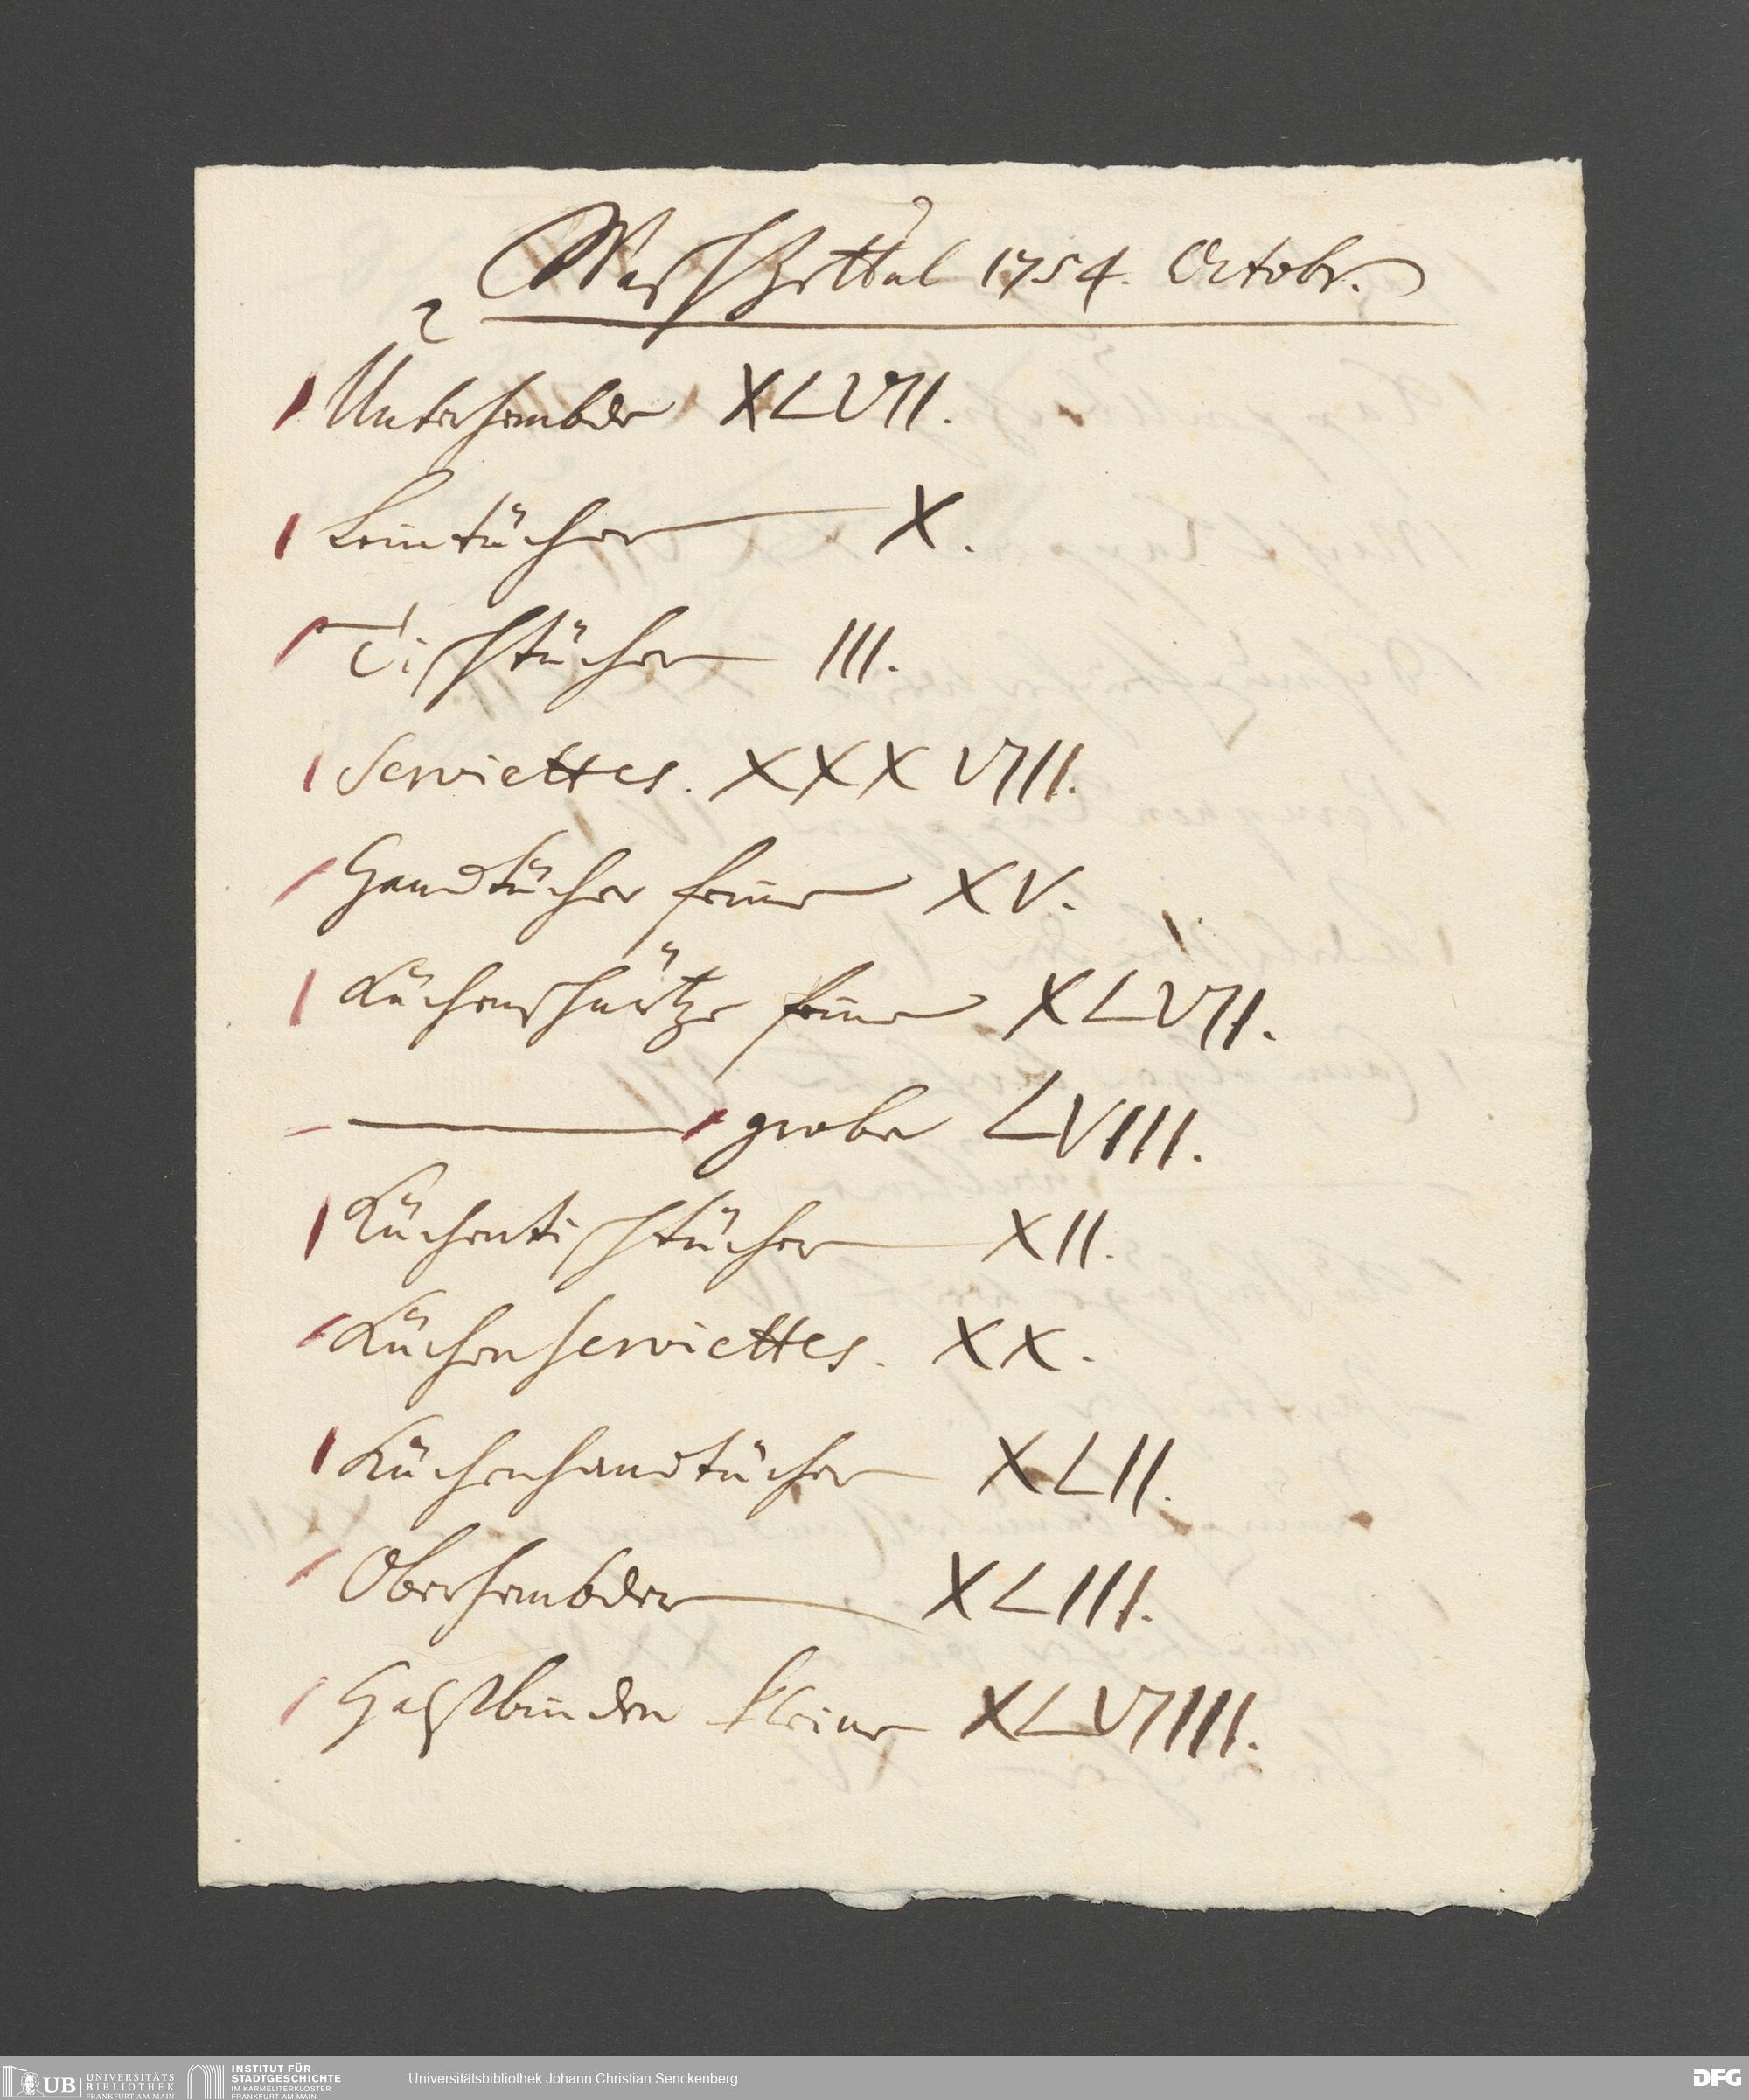 Waschzettel 1754. Octobr.
Unterhembder XLVII.
Leintücher X.
Tischtücher III.
Serviettes. XXXVIII.
Handtücher feine XV.
Küchenschürtze feine XLVII.
grobe LVIII.
Küchentischtücher XII.
Küchenserviettes. XX.
Küchenhandtücher XLII.
Oberhembder XLIII.
Halßbinden kleine XLVIIII.
UB UNIVERSITÄTS
BIBLIOTHEK
FRANKFURT AM MAIN
INSTITUT FÜR
STADTGESCHICHTE
IM KARMELITERKLOSTER
FRANKFURT AM MAIN
Universitätsbibliothek Johann Christian Senckenberg
DFG